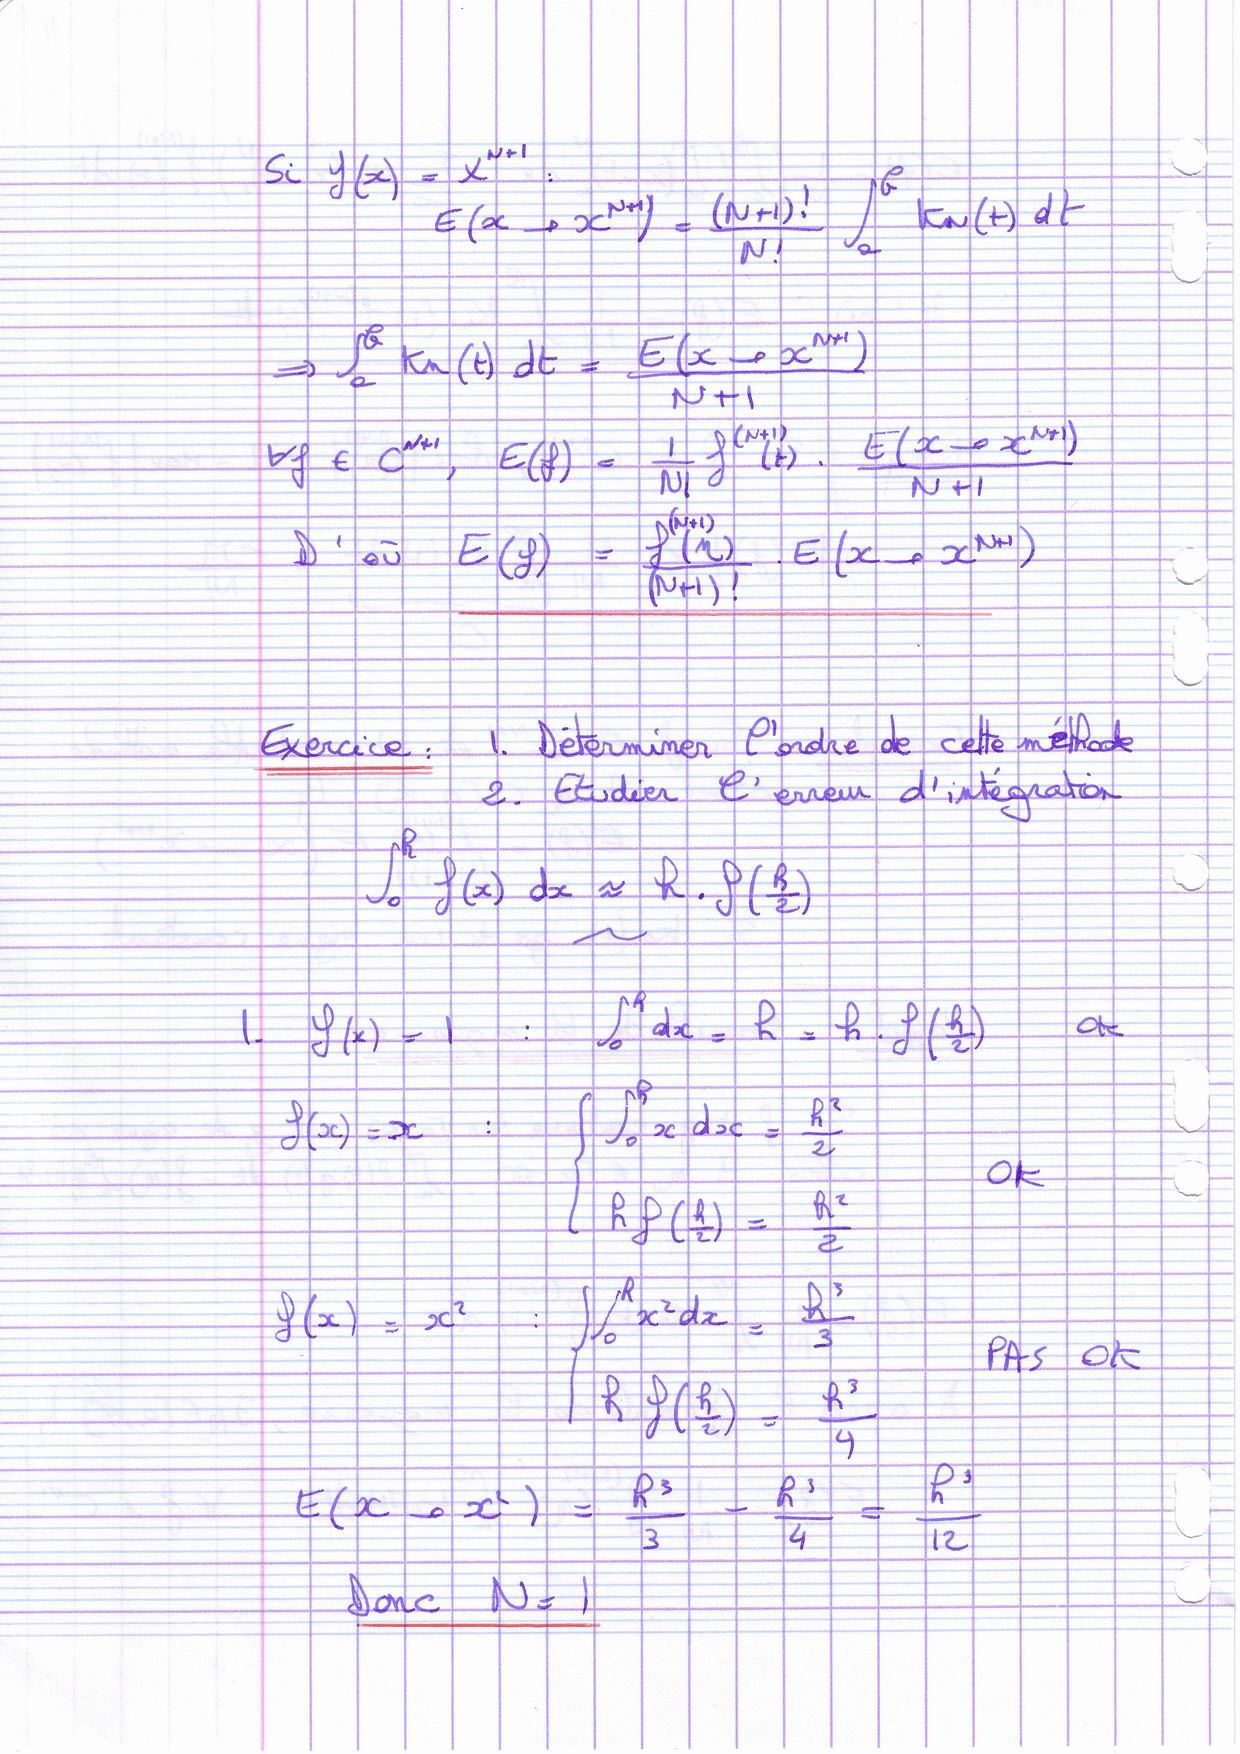 Si f(x) = x^{N+1} :
E(x → x^{N+1}) = \frac{(N+1)!}{N!} \int_a^b K_N(t) dt
⇒ \int_a^b K_N(t) dt = \frac{E(x → x^{N+1})}{N+1}
∀f ∈ C^{N+1}, E(f) = \frac{1}{N!} f^{(N+1)}(t) . \frac{E(x → x^{N+1})}{N+1}
D'où E(f) = \frac{f^{(N+1)}(η)}{(N+1)!} . E(x → x^{N+1})
Exercice : 1. Déterminer l'ordre de cette méthode
2. Etudier l'erreur d'intégration
\int_0^h f(x) dx ≈ h . f(\frac{h}{2})
1. f(x) = 1 : \int_0^h dx = h = h . f(\frac{h}{2}) OK
f(x) = x : { \int_0^h x dx = \frac{h^2}{2}
OK
h f(\frac{h}{2}) = \frac{h^2}{2}
f(x) = x^2 : { \int_0^h x^2 dx = \frac{h^3}{3}
PAS OK
h f(\frac{h}{2}) = \frac{h^3}{4}
E(x → x^2) = \frac{h^3}{3} - \frac{h^3}{4} = \frac{h^3}{12}
Donc N = 1